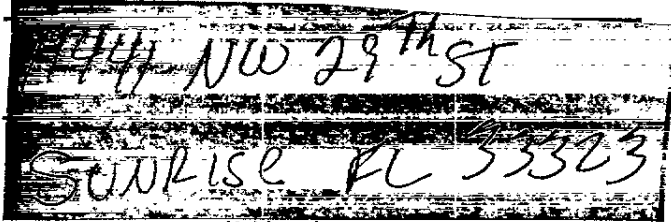 NW 29th ST
SUNRISE FL 33323